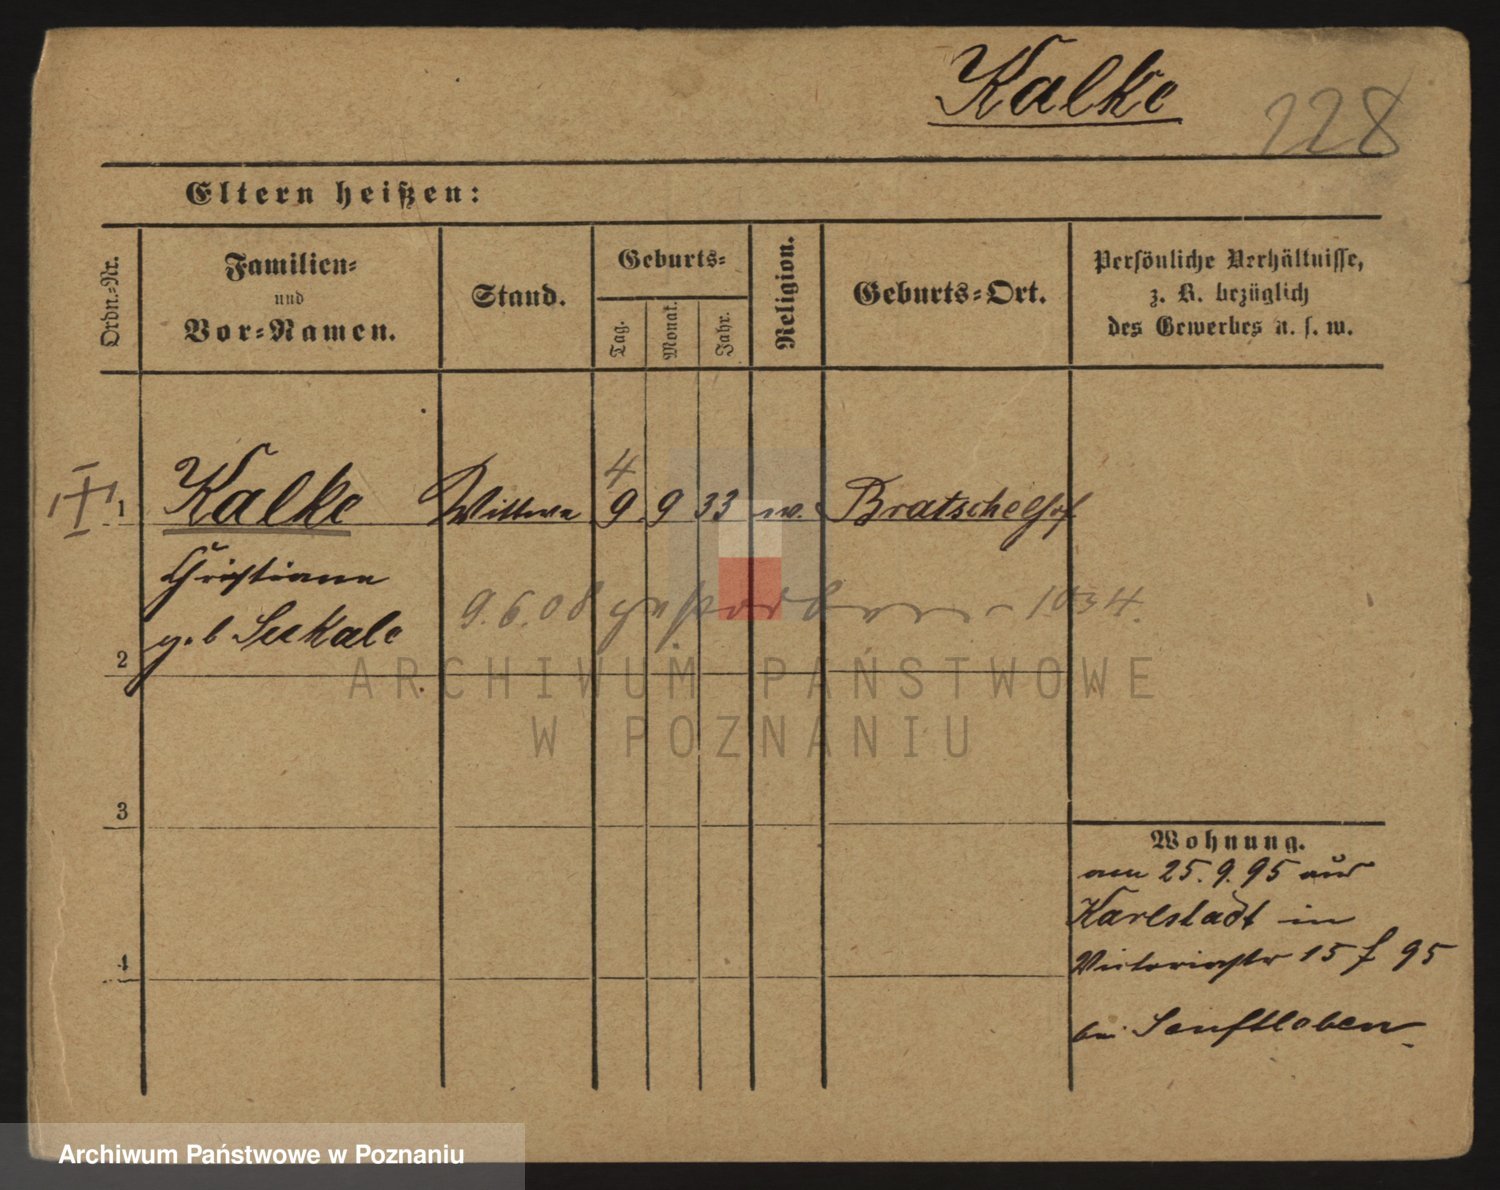 Kalke
228
Eltern heißen:
Ordn.-Nr.
Familien-
und
Vor-Namen.
Stand.
Geburts-
Tag.
Monat.
Jahr.
Religion.
Geburts-Ort.
Persönliche Verhältnisse,
z. B. bezüglich
des Gewerbes u. s. w.
4
1 Kalke Wittwe 9. 9 33 Bratschelhof
Christiane
geb
9.6.08 1034.
2
ARCHIWUM PAŃSTWOWE
W POZNANIU
3
Wohnung.
am 25.9.95 aus
Karlstadt in
Victoriastr 15 f 95
4
bei Senftleben
Archiwum Państwowe w Poznaniu